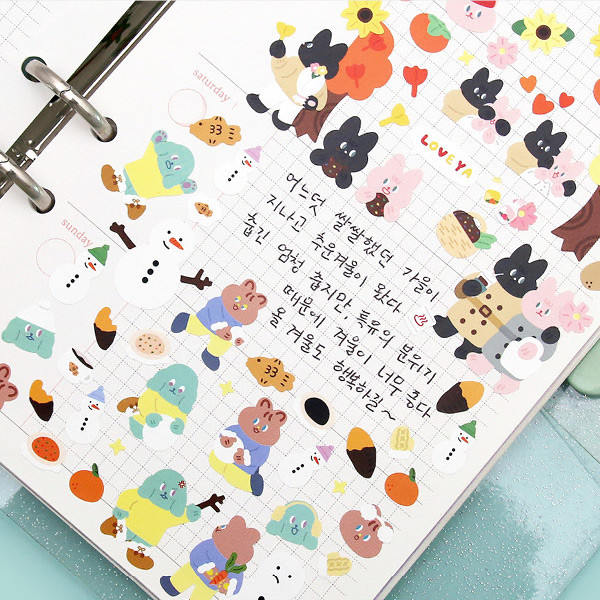 saturday
sunday
LOVE YA
어느덧 쌀쌀했던 가을이
지나고 추운겨울이 왔다
춥긴 엄청 춥지만, 특유의 분위기
때문에 겨울이 너무 좋다
올 겨울도 행복하길~